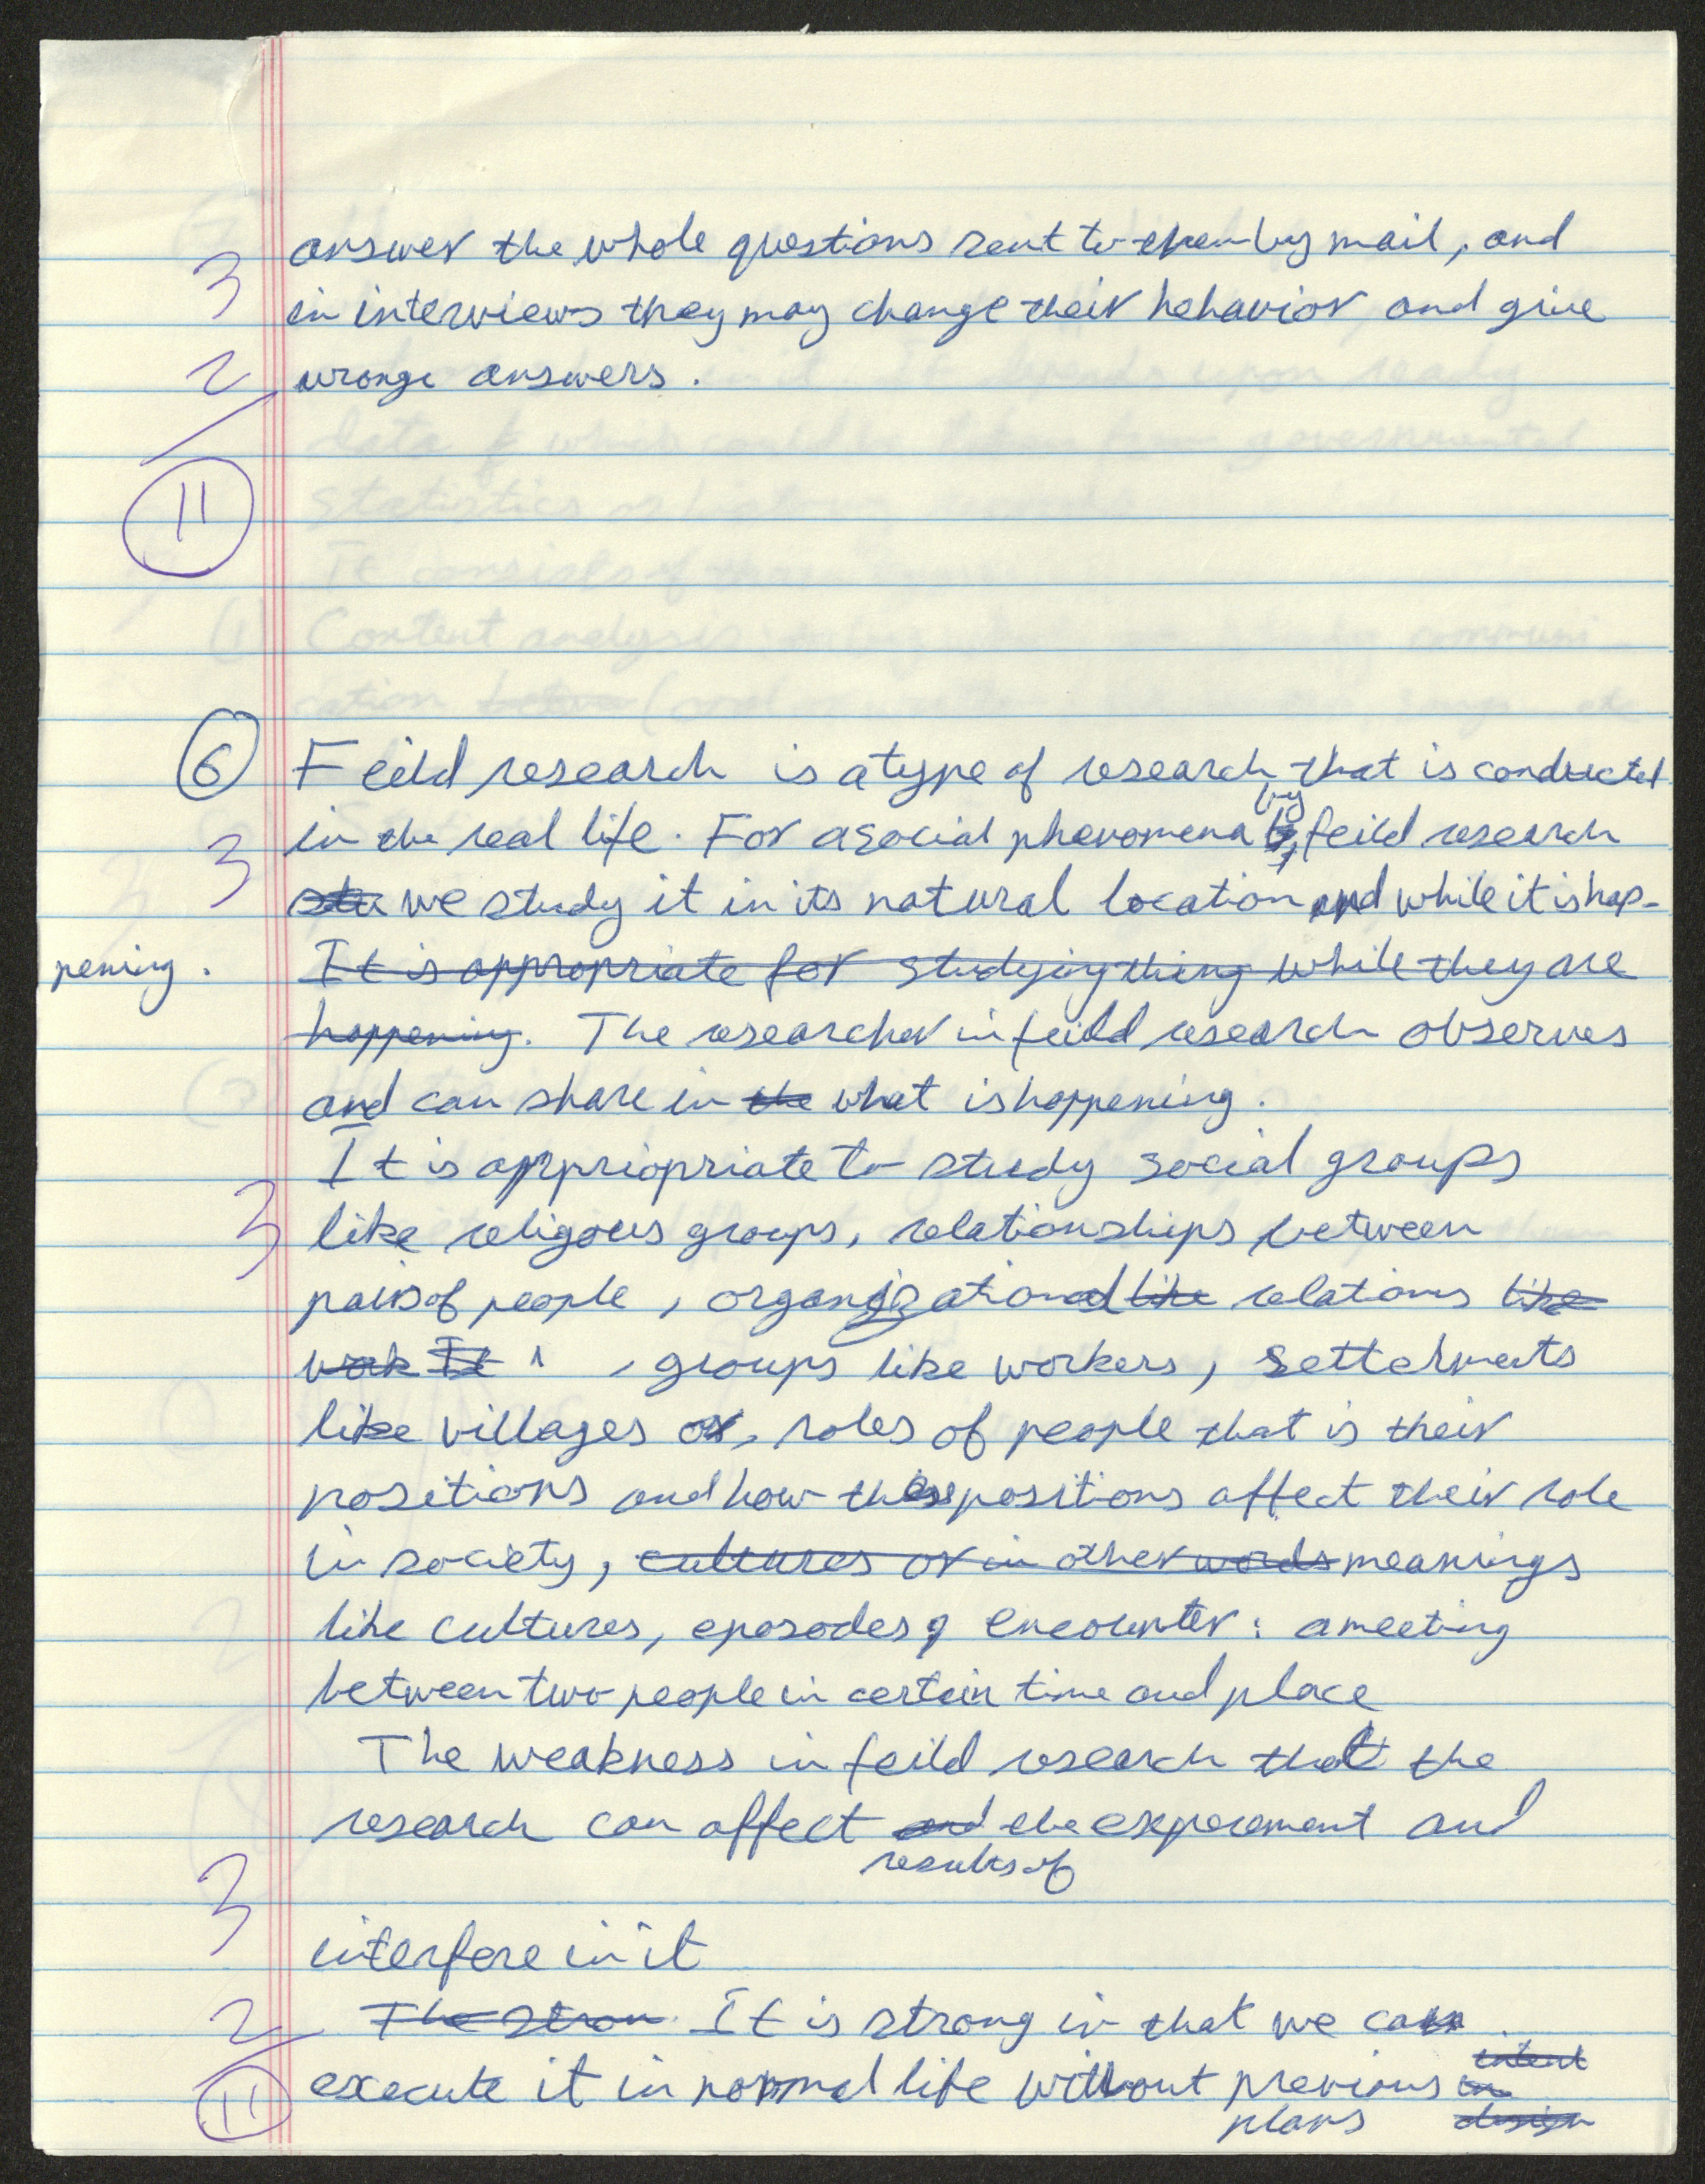 answer the whole questions sent to them by mail, and
3
in interviews they may change their behavior and give
2
wronge answers.
11
6 Feild research is a type of research that is conducted
by
in the real life. For a social phenomena feild research
3
we study it in its natural location and while it is hap-
pening. It is appropriate for studying thing while they are
happening. The researcher in feild research observes
and can share in the what is happening.
It is appriopriate to study social groups
3
like religous groups, relationships between
pairs of people, organizational like relations like
work It , groups like workers, settelments
like villages or, roles of people that is their
positions and how these positions affect their role
in society, cultures or in other words meanings
like cultures, eposodes, encounter: a meeting
between two people in certein time and place
The weakness in feild research that the
research can affect and the experement and
results of
3
interfere in it
The stron It is strong in that we can
2
execute it in normal life without previous in
intent
plans design
11